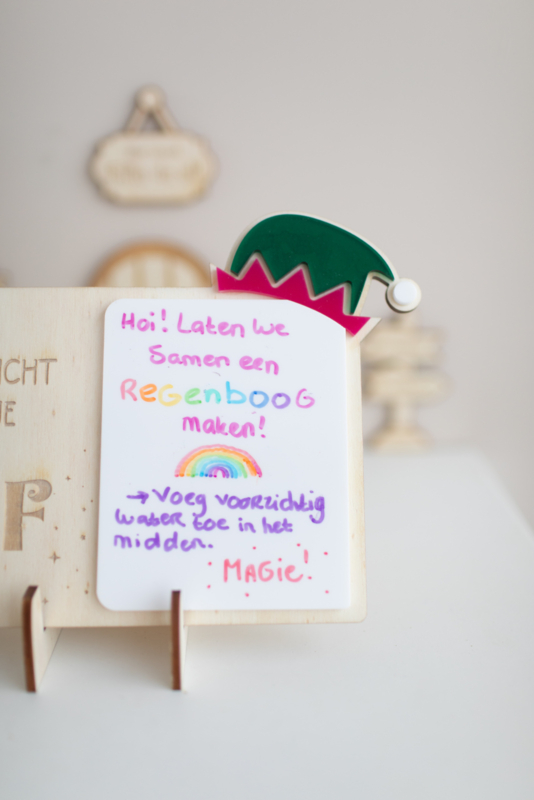 Hoi! Laten we
Samen een
REGenbooG
maken!
→ Voeg voorzichtig
water toe in het
midden.
MAGie!
ICHT
JE
F